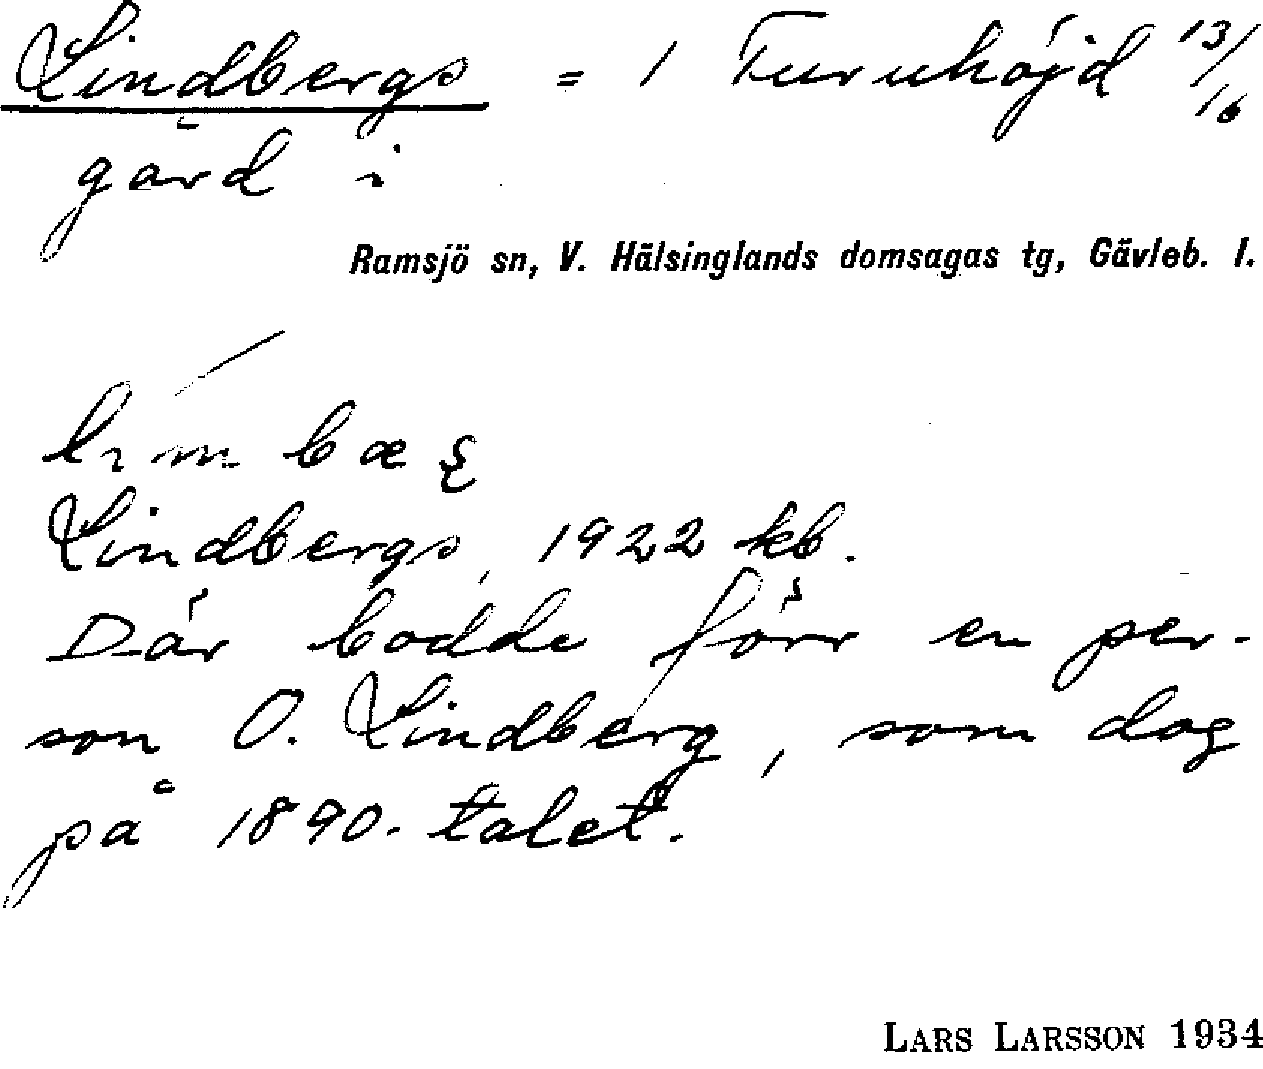 Lindbergs = 1 Furuhöjd 13/16
gård i
Ramsjö sn, V. Hälsinglands domsagas tg, Gävleb. l.
Lindbergs, 1922 kb.
Där bodde förr en per-
son O. Lindberg, som dog
på 1890-talet.
LARS LARSSON 1934